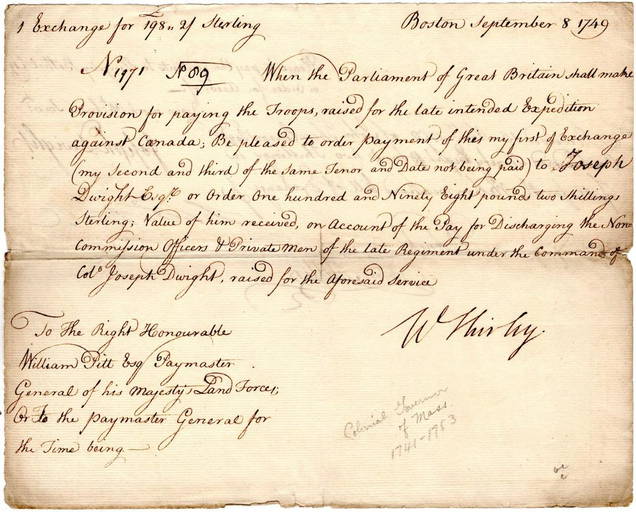 1 Exchange for 198„ 2/ Sterling
Boston September 8 1749
No 1971 No 89 When the Parliament of Great Britain shall make
Provision for paying the Troops, raised for the late intended Expedition
against Canada; Be pleased to order Payment of this my first of Exchange
(my Second and third of the same Tenor and Date not being paid) to Joseph
Dwight Esqr. or Order One hundred and Ninety Eight pounds two Shillings
Sterling; Value of him received, on Account of the Pay for Discharging the None
Commission Officers & Private Men of the late Regiment under the Command of
Colo. Joseph Dwight, raised for the Aforesaid Service
W Shirley.
To The Right Honourable
William Pitt Esq Paymaster
General of his Majestys Land Forces,
Or To the paymaster General for
the Time being
Colonial Governor
of Mass.
1741-1753